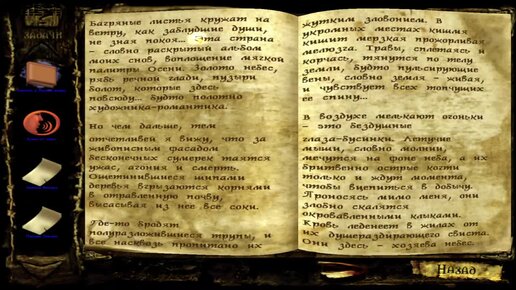 ЗАДАЧИ
Багряные листья кружат на
ветру, как заблудшие души,
не зная покоя... Эта страна
- словно раскрытый альбом
моих снов, воплощение мягкой
палитры Осени: Золото небес,
рябь речной глади, пузыри
болот, которые здесь
повсюду... Будто полотно
художника-романтика.
Но чем дальше, тем
отчетливей я вижу, что за
живописным фасадом
бесконечных сумерек таятся
ужас, агония и смерть.
Ощетинившиеся шипами
деревья вгрызаются корнями
в отравленную почву,
высасывая из нее все соки.
Где-то бродят
полуразложившиеся трупы, и
все насквозь пропитано их
жутким зловонием. В
укромных местах кишмя
кишит мерзкая прожорливая
мелюзга. Травы, сплетаясь и
корчась, тянутся по телу
земли, будто пульсирующие
вены, словно земля - живая,
и чувствует всех топчущих
ее спину...
В воздухе мелькают огоньки
- это бездушные
глаза-бусинки. Летучие
мыши, словно молнии,
мечутся на фоне неба, а их
бритвенно острые когти
только и ждут момента,
чтобы вцепиться в добычу.
Проносясь мимо меня, они
злобно скалятся
окровавленными клыками.
Кровь леденеет в жилах от
их душераздирающего свиста.
Они здесь - хозяева небес.
Назад